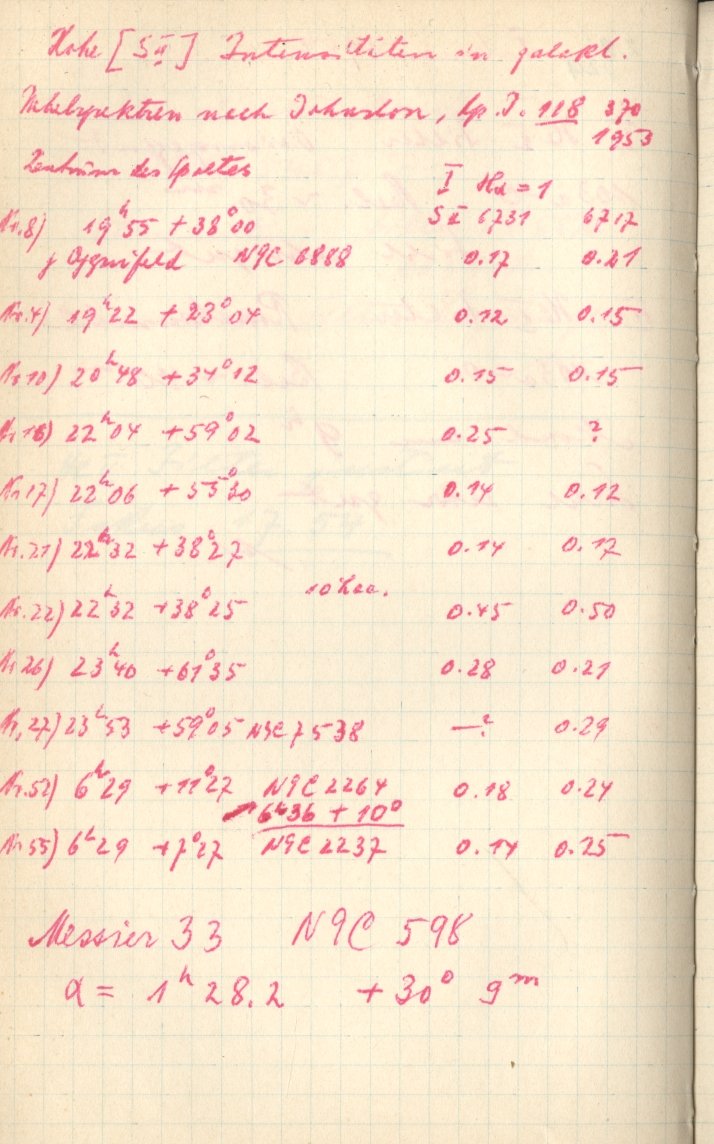 Hohe [S II] Intensitäten in galakt.
Nebelspektren nach Johnson, Ap. J. 118 370
1953
Zentrum des Spaltes
I Hα = 1
S II 6731 6717
Nr. 8) 19h 55 + 38° 00
γ Cygnifeld NGC 6888 0.17 0.21
Nr. 4) 19h 22 + 23° 04 0.12 0.15
Nr 10) 20h 48 + 34° 12 0.15 0.15
Nr 16) 22h 04 + 59° 02 0.25 ?
Nr 17) 22h 06 + 55° 30 0.14 0.12
Nr. 21) 22h 32 + 38° 27 0.14 0.17
Nr. 22) 22h 32 + 38° 25 0.45 0.50
Nr 26) 23h 40 + 61° 35 0.28 0.21
Nr. 27) 23h 53 + 59° 05 NGC 7538 —? 0.29
Nr. 52) 6h 29 + 11° 27 NGC 2264 0.18 0.24
6h 36 + 10°
Nr 55) 6h 29 + 7° 27 NGC 2237 0.14 0.25
Messier 33 NGC 598
α = 1h 28.2 + 30° 9m